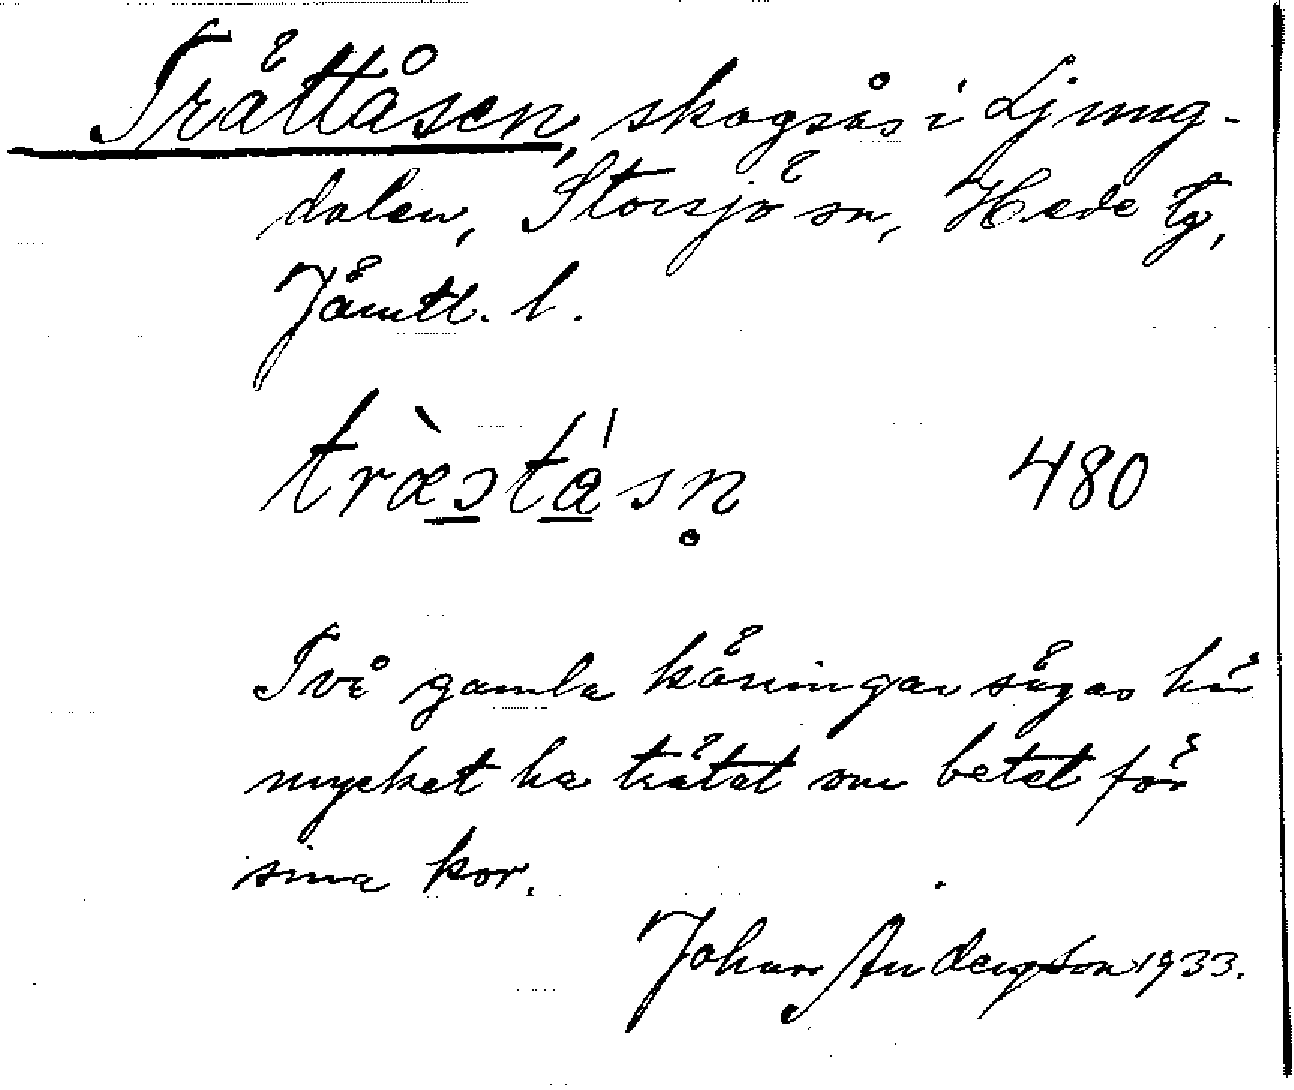 Trättåsen, skogsås i Ljung-
dalen, Storsjö sn, Hede tg,
Jämtl. l.
træ̀ɔtásn̥ 480
Två gamla käringar sägas här
mycket ha trätat om betet för
sina kor.
Johan Anderson 1933.